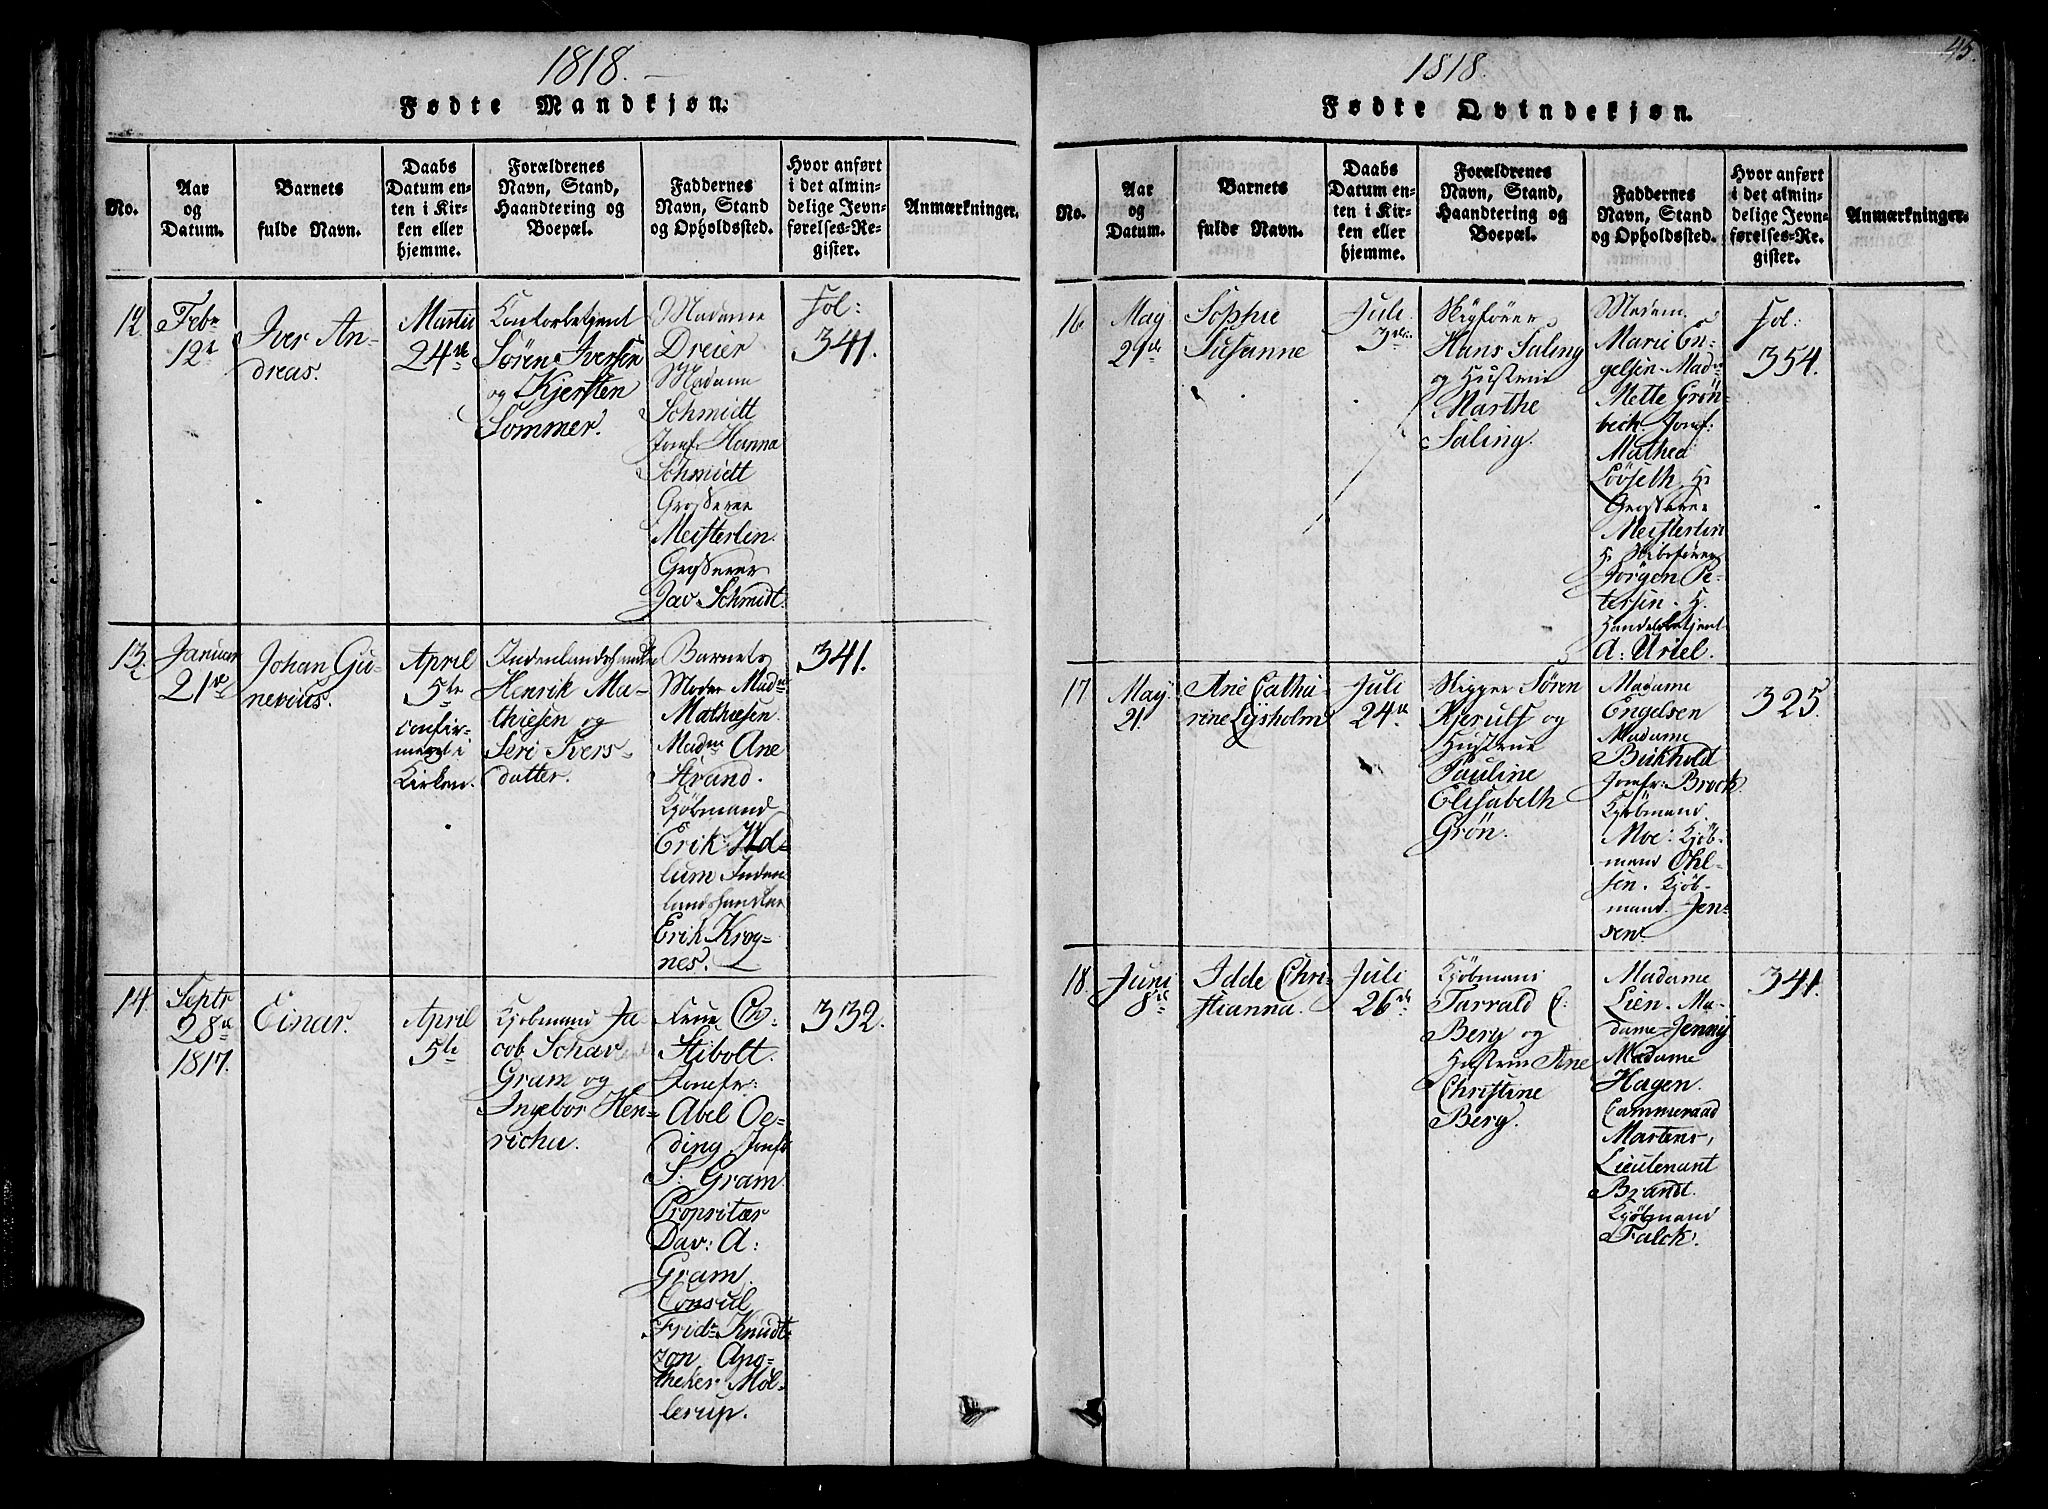 1818.
Fødte Mandkjøn.
No.
Aar
og
Datum.
Barnets
fulde Navn.
Daabs
Datum en-
ten i Kir-
ken eller
hjemme.
Forældrenes
Navn, Stand,
Haandtering og
Boepæl.
Faddernes
Navn, Stand
og Opholdssted.
Hvor anført
i det almin-
delige Jevn-
førelses-Re-
gister.
Anmærkninger.
12
Febr
12te
Iver An-
dreas.
Martii
24de
Contorbetjent
Søren Iversen
og Kjersten
Sommer.
Madame
Dreier
Madame
Schmidt
Jomf. Hanna
Schmidt
Grosserer
Meisterlin
Grosserer
Jav. Schmidt.
Fol:
341.
13
Januar
21de
Johan Gu-
nerius.
April
5te
confir-
meret i
Kirken.
Indenlandshandler
Henrik Ma-
thiesen og
Seri Ivers-
datter.
Barnets
Moder Madme
Mathiesen.
Madme Ane
Strand.
Kjöbmand
Erik
lum Inden-
landshandler
Erik Krog-
nes.
341.
14.
Septr
28de
1817.
Einar.
April
5te
Kjöbmand Ja-
cob Schav
Gram og
Ingebor Hen-
richa.
Frue
Stibolt.
Jomfr:
Abel Oe-
ding. Jomfr
S: Gram.
Propritær
Dav: A:
Gram.
Consul
Fridr Knudt-
zon. Apo-
theker Möl-
lerup.
332.
45.
1818.
Fødte Qvindekjøn.
No.
Aar
og
Datum.
Barnets
fulde Navn.
Daabs
Datum en-
ten i Kir-
ken eller
hjemme.
Forældrenes
Navn, Stand,
Haandtering og
Boepæl.
Faddernes
Navn, Stand
og Opholdssted.
Hvor anført
i det almin-
delige Jevn-
førelses-Re-
gister.
Anmærkninger.
16
May
21de
Sophie
Susanne
Juli
3die
Hans Saling
og Hustrue
Marthe
Saling.
Madam
Marie En-
gelsen. Madme
Mette Grön-
beck. Jomf:
Mathea
Lövseth. Hr
Grosserer
Meisterlin
Hr Skibsförer
Jörgen Pe-
tersen. Hr.
Handelsbetjent
A: Uriel.
Fol:
354.
17.
May
21.
Ane Catha-
rine Lysholm
Juli
24de
Skipper Sören
Kjerulf og
Hustrue
Pauline
Elisabeth
Grön.
Madame
Engelsen
Madame
Bukhold
Jomfr: Brock.
Kjöbmand
Moe. Kjöb-
mand Ohl-
sen. Kjöb-
mand. Jen-
sen.
325.
18.
Juni
8de
Idde Chri-
stianna.
Juli
26de
Kjöbmand
Tarrald C:
Berg og
Hustrue Ane
Christine
Berg.
Madame
Lien. Ma-
dame Jenny
Madame
Hagen.
Cammeraad
Martens,
Lieutenant
Brandt.
Kjöbmand
Falck.
341.